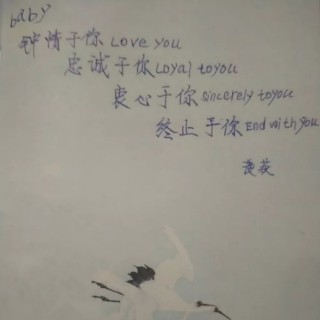 baby
钟情于你 Love you
忠诚于你 Loyal to you
衷心于你 sincerely to you
终止于你 End with you